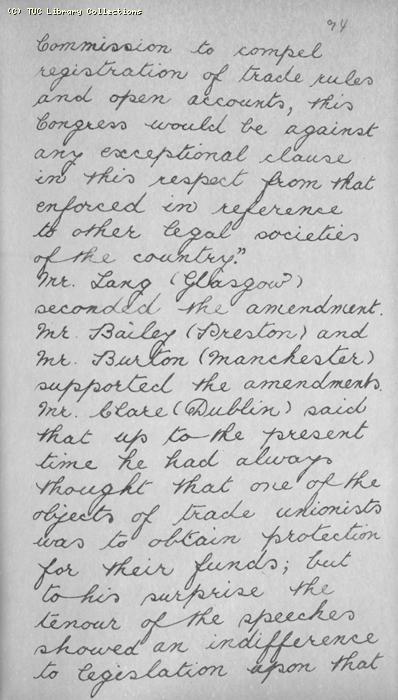 (C) TUC Library Collections
94
Commission to compel
registration of trade rules
and open accounts, this
Congress would be against
any exceptional clause
in this respect from that
enforced in reference
to other legal societies
of the country."
Mr. Lang (Glasgow)
seconded the amendment.
Mr. Bailey (Preston) and
Mr. Burton (Manchester)
supported the amendments.
Mr. Clare (Dublin) said
that up to the present
time he had always
thought that one of the
objects of trade unionists
was to obtain protection
for their funds; but
to his surprise the
tenour of the speeches
showed an indifference
to legislation upon that